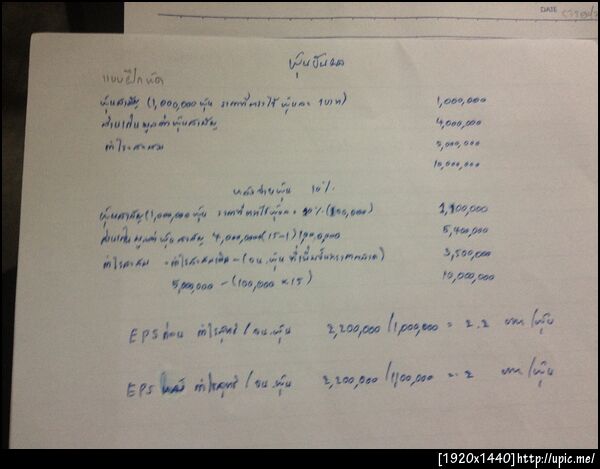 DATE
หุ้นปันผล
แบบฝึกหัด
หุ้นสามัญ (1,000,000 หุ้น ราคาที่ตราไว้ หุ้นละ 1 บาท) 1,000,000
ส่วนเกินมูลค่าหุ้นสามัญ 4,000,000
กำไรสะสม 5,000,000
10,000,000
หลังจ่ายหุ้น 10%
หุ้นสามัญ (1,000,000 หุ้น ราคาที่ตราไว้ หุ้นละ 10% (100,000) 1,100,000
ส่วนเกินมูลค่าหุ้นสามัญ 4,000,000+(15-1)100,000 5,400,000
กำไรสะสม = กำไรสะสมเดิม - (จน.หุ้น ที่เพิ่มขึ้น×ราคาตลาด) 3,500,000
5,000,000 - (100,000 × 15) 10,000,000
EPS ก่อน กำไรสุทธิ / จน.หุ้น 2,200,000 / 1,000,000 = 2.2 บาท/หุ้น
EPS หลัง กำไรสุทธิ / จน.หุ้น 2,200,000 / 1,100,000 = 2 บาท/หุ้น
[1920x1440]http://upic.me/